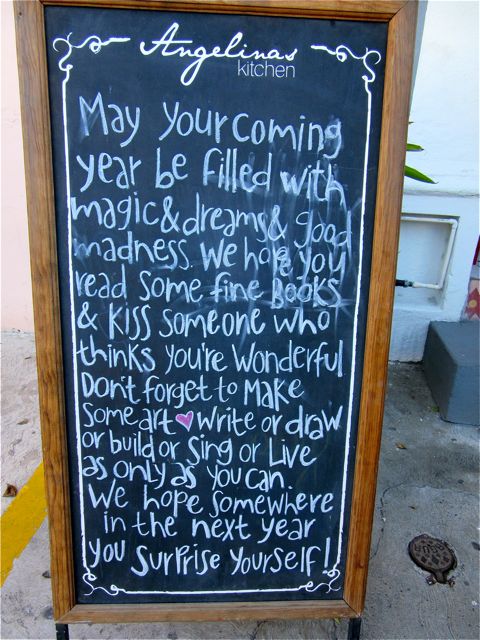 Angelinas
kitchen
May your coming
year be filled with
magic & dreams & good
madness. We hope you
read some fine books
& kiss someone who
thinks you're wonderful
Don't forget to make
some art ♥ write or draw
or build or sing or Live
as only as you can.
We hope somewhere
in the next year
you surprise yourself!